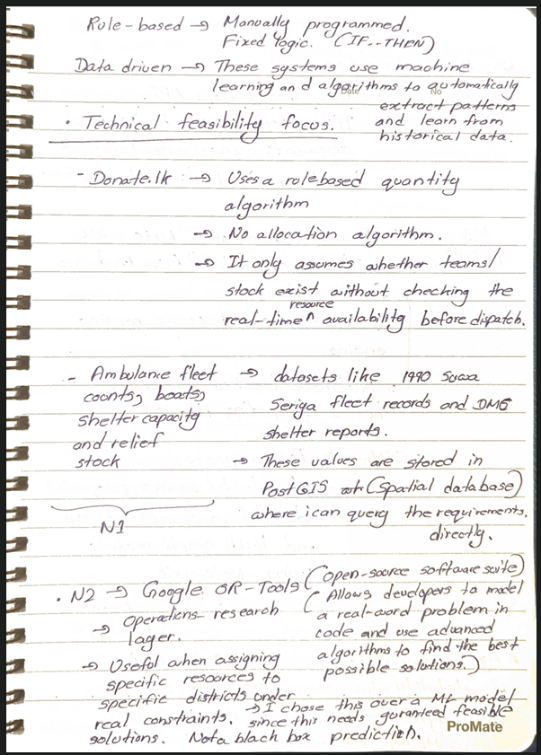 Rule-based → Manually programmed.
Fixed logic. (IF..THEN)
Data driven → These systems use machine
learning and algorithms to automatically
extract patterns
and learn from
historical data.
• Technical feasibility focus.
- Donate.lk → Uses a rolebased quantity
algorithm
→ No allocation algorithm.
→ It only assumes whether teams/
stock exist without checking the
real-time ^ resource availability before dispatch.
- Ambulance fleet → datasets like 1990 Suwa
counts, boats, Seriga fleet records and DMC
shelter capacity shelter reports.
and relief
stock → These values are stored in
PostGIS (spatial database)
N1 where i can query the requirements.
directly.
• N2 → Google OR-Tools (open-source software suite)
( Allows developers to model
→ Operations research a real-word problem in
layer. code and use advanced
algorithms to find the best
→ Useful when assigning possible solutions.)
specific resources to
specific districts under
real constraints. → I chose this over a ML model
since this needs guranteed feasible
solutions. Not a black box prediction.
ProMate